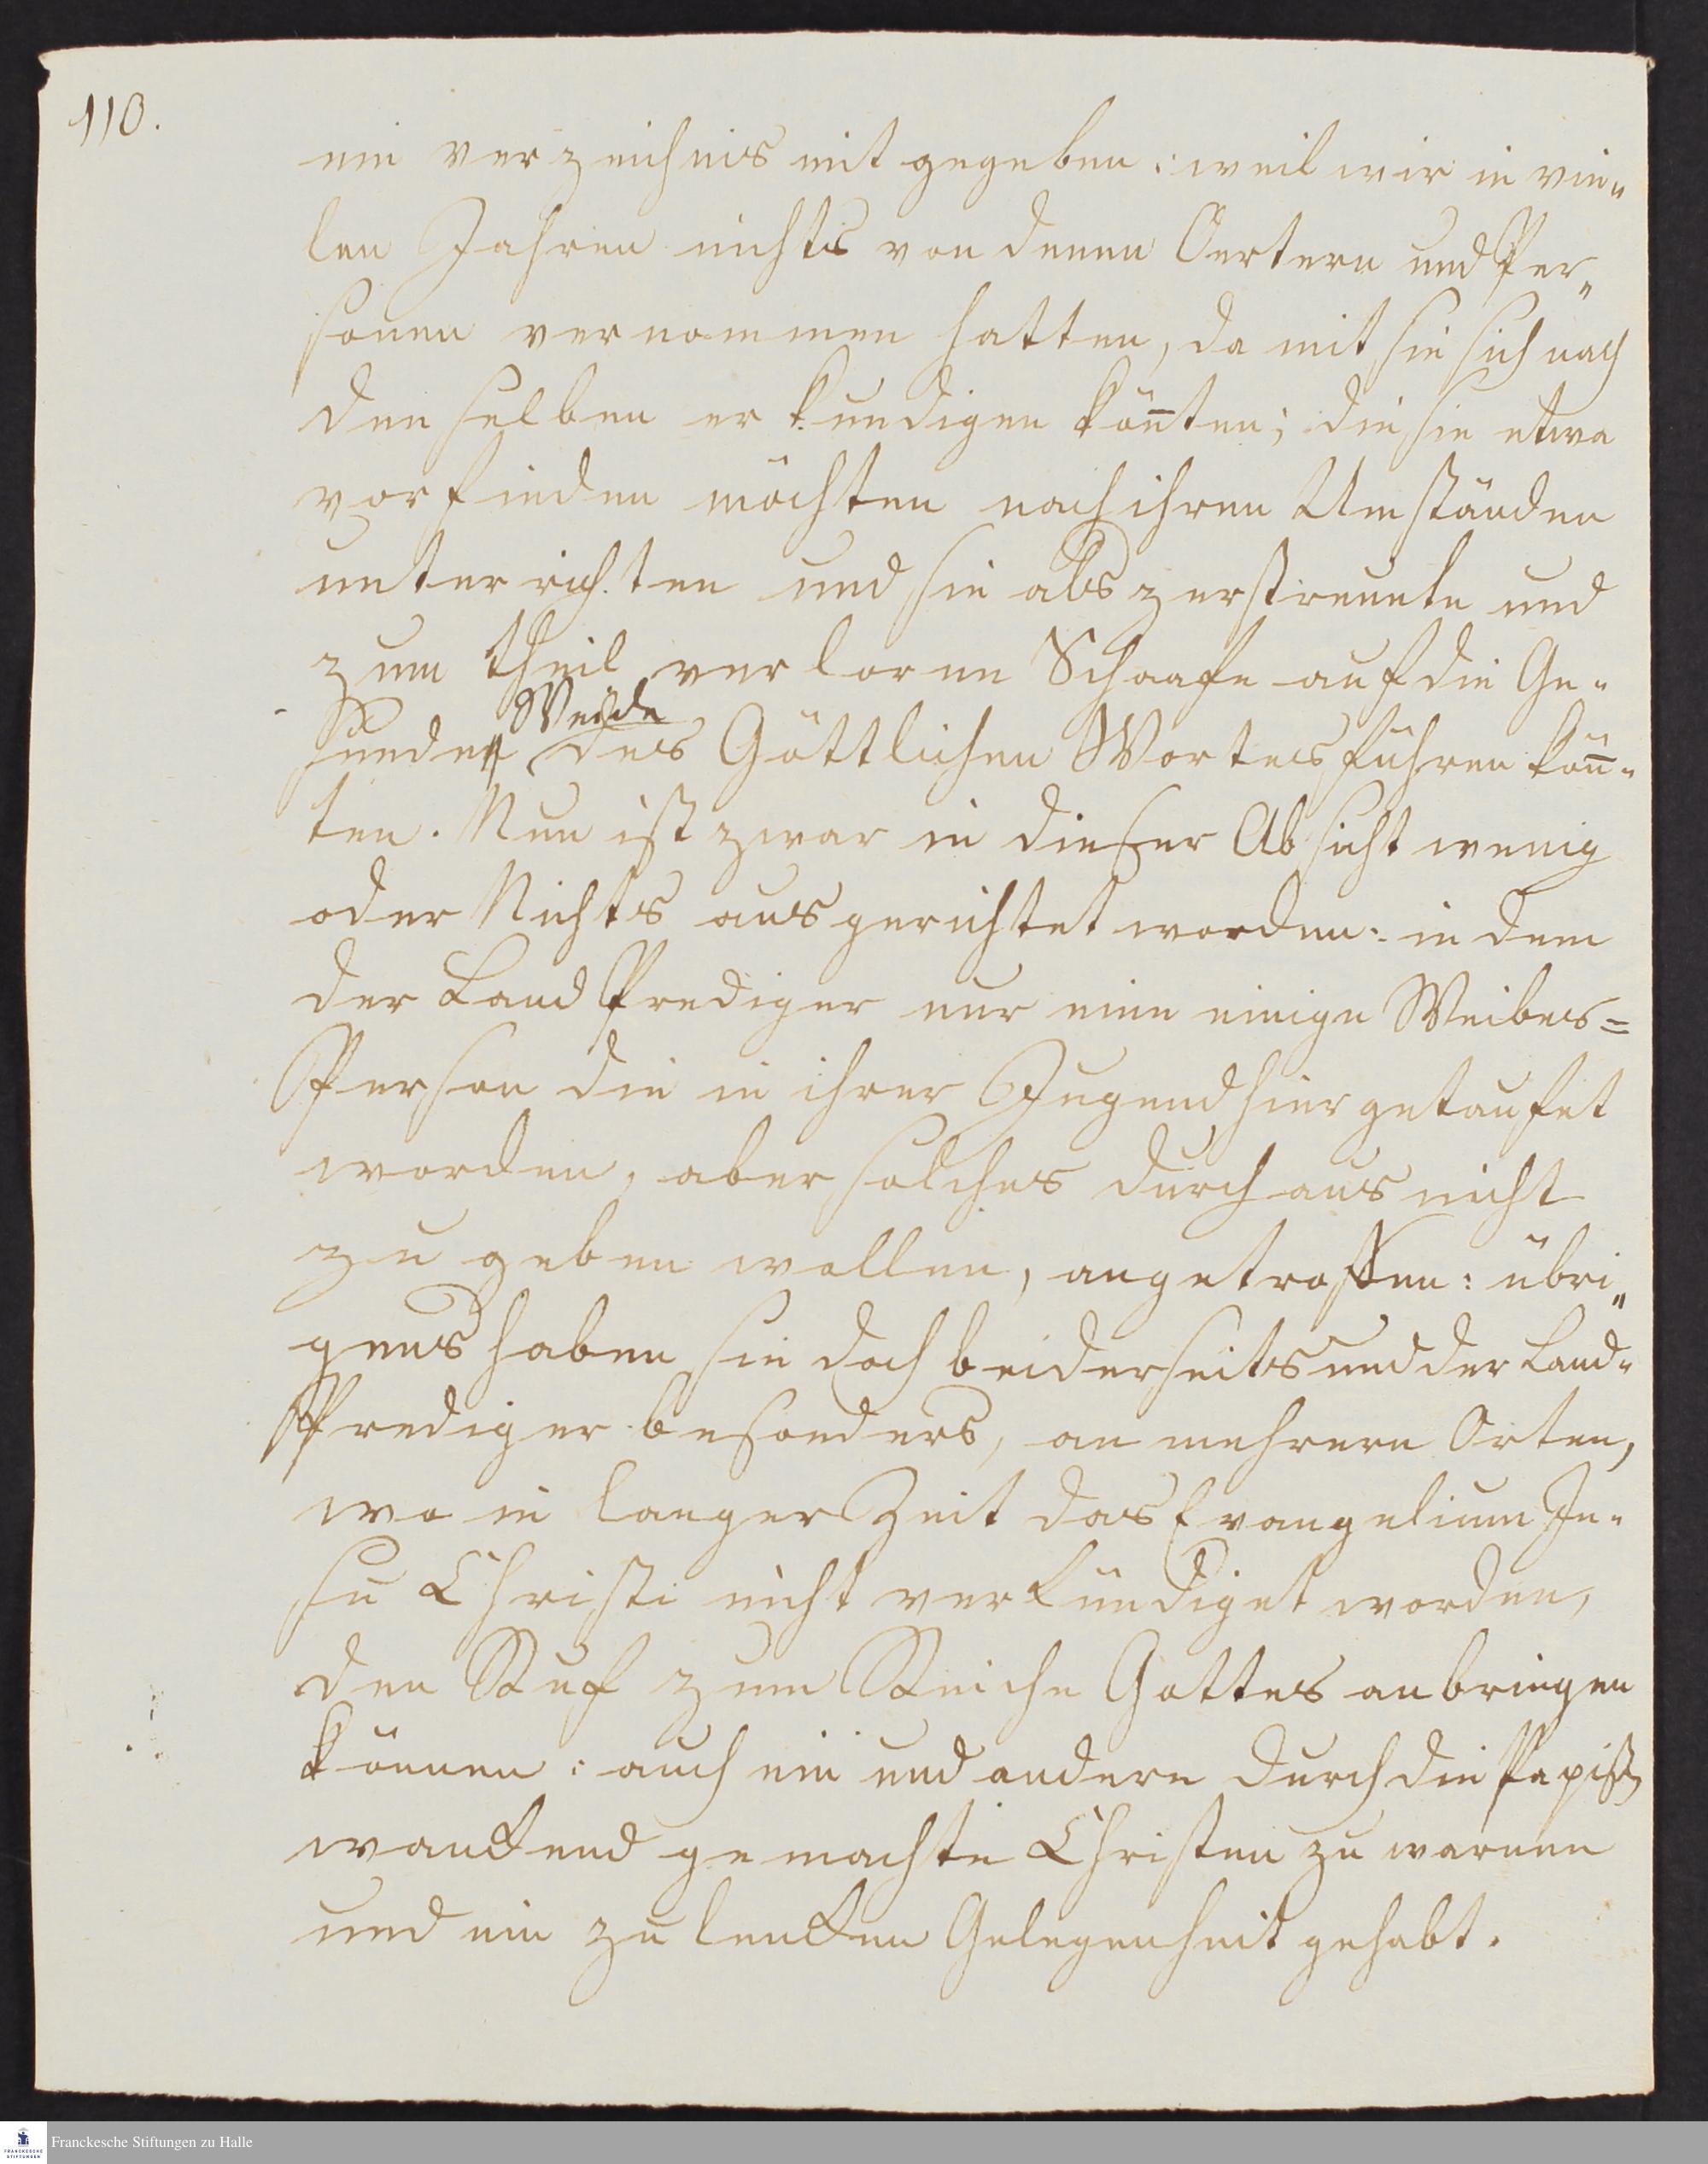 110.
ein verzeichnis mit gegeben: weil wir in vie„
len Jahren nichts von denen Oertern und Per„
sonen vernommen hatten, da mit sie sich nach
den selben er kundigen kön̄ten; die sie etwa
vorfinden möchten nach ihren Umständen
unterrichten und sie als zerstreuete und
zum theil verlorne Schaafe auf die Ge-
Weide
sunde des Göttlichen Wortes führen kön̄-
ten. Nun ist zwar in dieser Absicht wenig
oder Nichts ausgerichtet worden: in dem
der Land Prediger nur eine einige Weibes=
Person die in ihrer Jugend hier getaufet
worden, aber solches durchaus nicht
zu geben wollen, angetroffen: übri„
gens haben sie doch beiderseits und der Land-
Prediger besonders, an mehrern Orten,
wo in langer Zeit das Evangelium Je-
su Christi nicht verkündiget worden,
den Ruf zum Reiche Gottes anbringen
können: auch ein und andere durch die
wankend gemachte Christen zu warnen
und ein zu lencken Gelegenheit gehabt.
Franckesche Stiftungen zu Halle
FRANCKESCHE
STIFTUNGEN